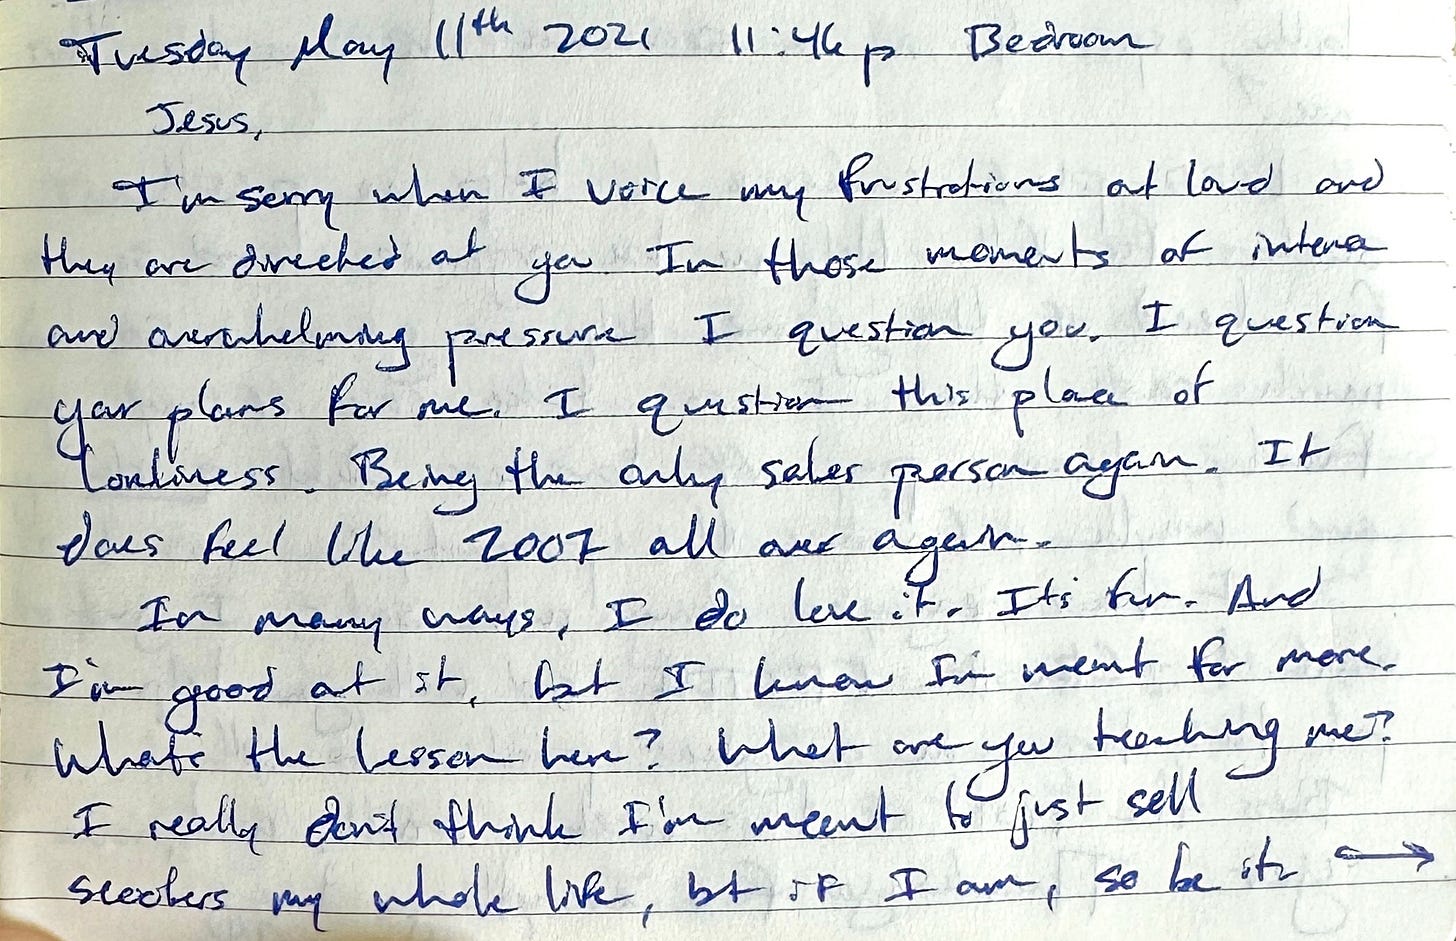 Tuesday May 11th 2021 11:46p Bedroom
Jesus,
I'm sorry when I voice my frustrations out loud and
they are directed at you In those moments of intense
and overwhelming pressure I question you. I question
your plans for me. I question this place of
Lonliness. Being the only sales person again. It
does feel like 2007 all over again.
In many ways, I do love it. It's fun. And
I'm good at it, but I know I'm meant for more.
What's the lesson here? What are you teaching me?
I really don't think I'm meant to just sell
scooters my whole life, but if I am, so be it. →